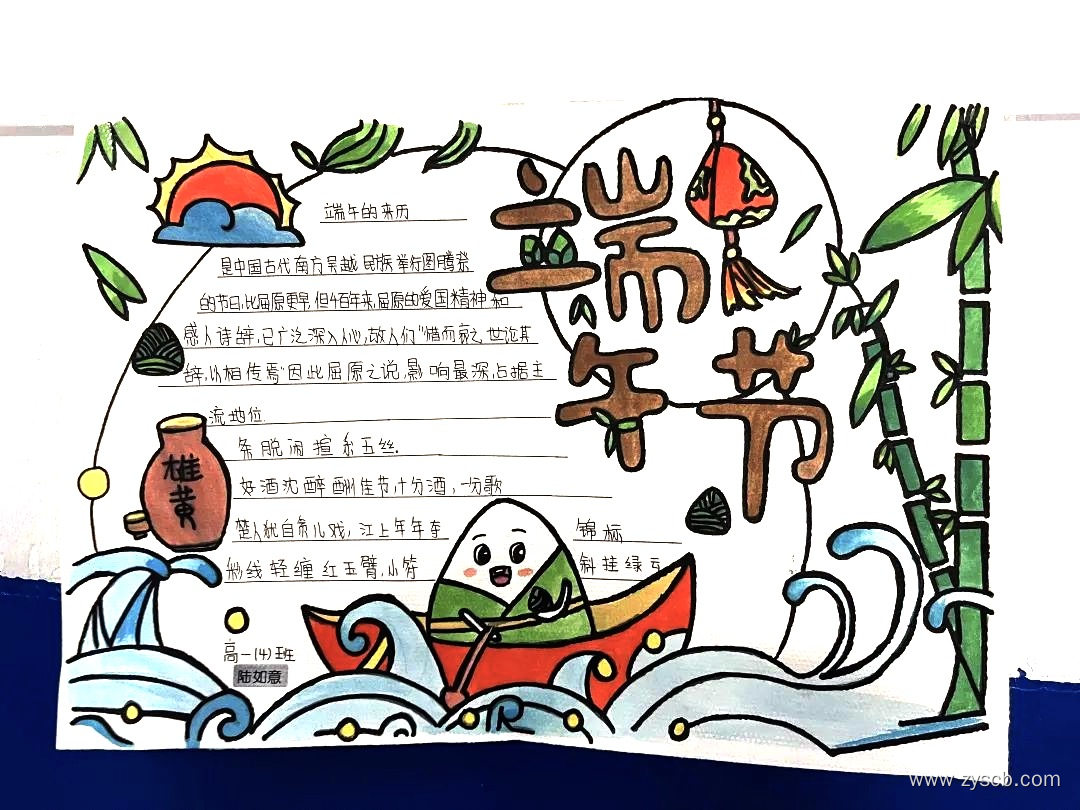 端午节
端午的来历
是中国古代南方吴越民族举行图腾祭
的节日,比屈原更早,但千百年来,屈原的爱国精神和
感人诗辞,已广泛深入人心,故人们“惜而哀之,世论其
辞,以相传焉”因此屈原之说,影响最深,占据主
流地位.
雄黄
条脱闲揎系五丝.
好酒沈醉酬佳节,十分酒,一分歌
楚人犹自贵儿戏,江上年年夺
锦标
彩线轻缠红玉臂,小符
斜挂绿云
高一(4)班
陆如意
www.zyscb.com